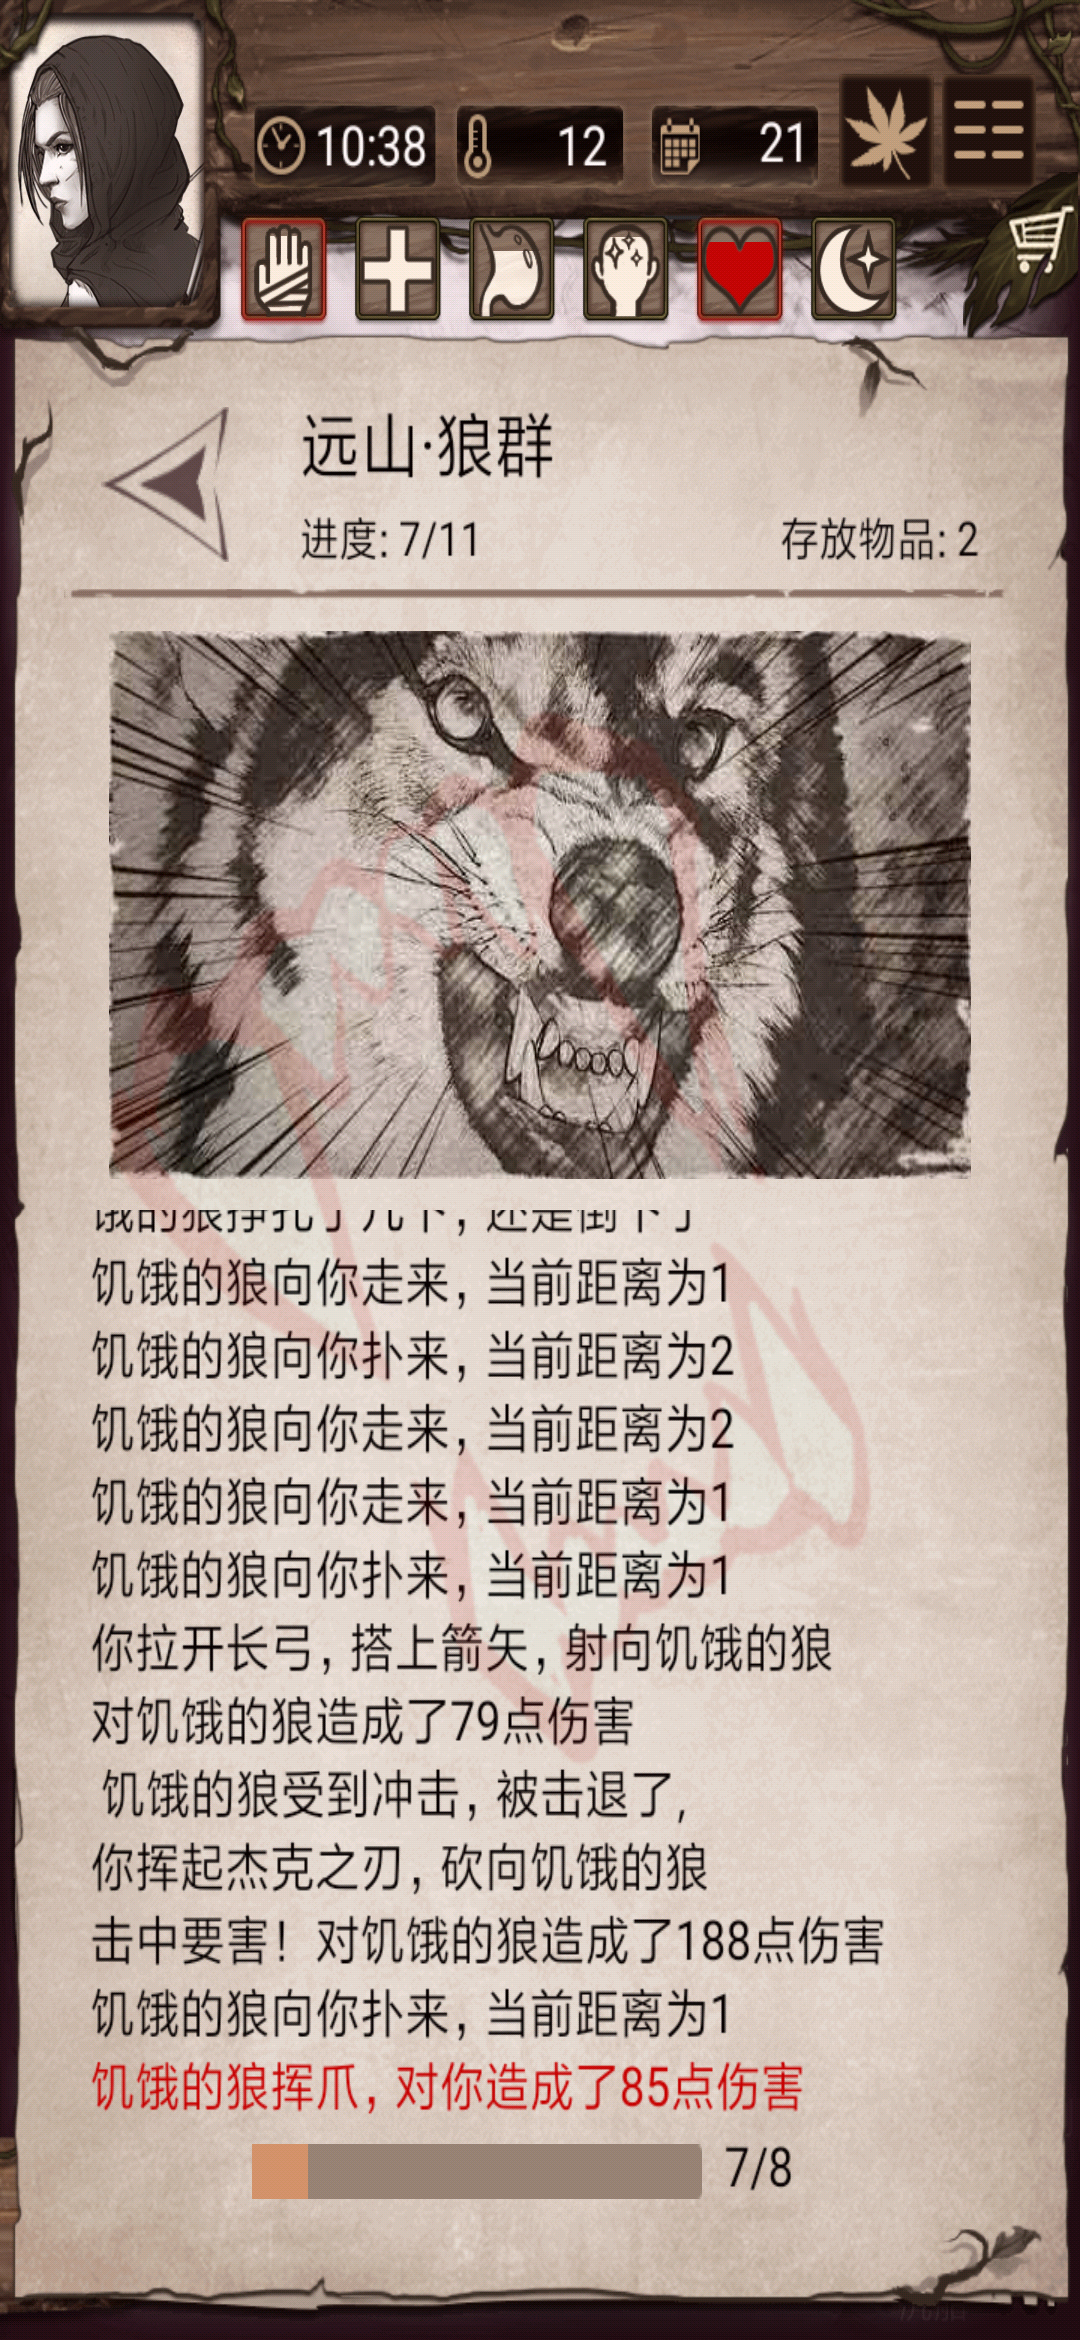 10:38 12 21
远山·狼群
进度: 7/11 存放物品: 2
饿的狼挣扎了几下, 还是倒下了
饥饿的狼向你走来, 当前距离为1
饥饿的狼向你扑来, 当前距离为2
饥饿的狼向你走来, 当前距离为2
饥饿的狼向你走来, 当前距离为1
饥饿的狼向你扑来, 当前距离为1
你拉开长弓, 搭上箭矢, 射向饥饿的狼
对饥饿的狼造成了79点伤害
饥饿的狼受到冲击, 被击退了,
你挥起杰克之刃, 砍向饥饿的狼
击中要害! 对饥饿的狼造成了188点伤害
饥饿的狼向你扑来, 当前距离为1
饥饿的狼挥爪, 对你造成了85点伤害
7/8